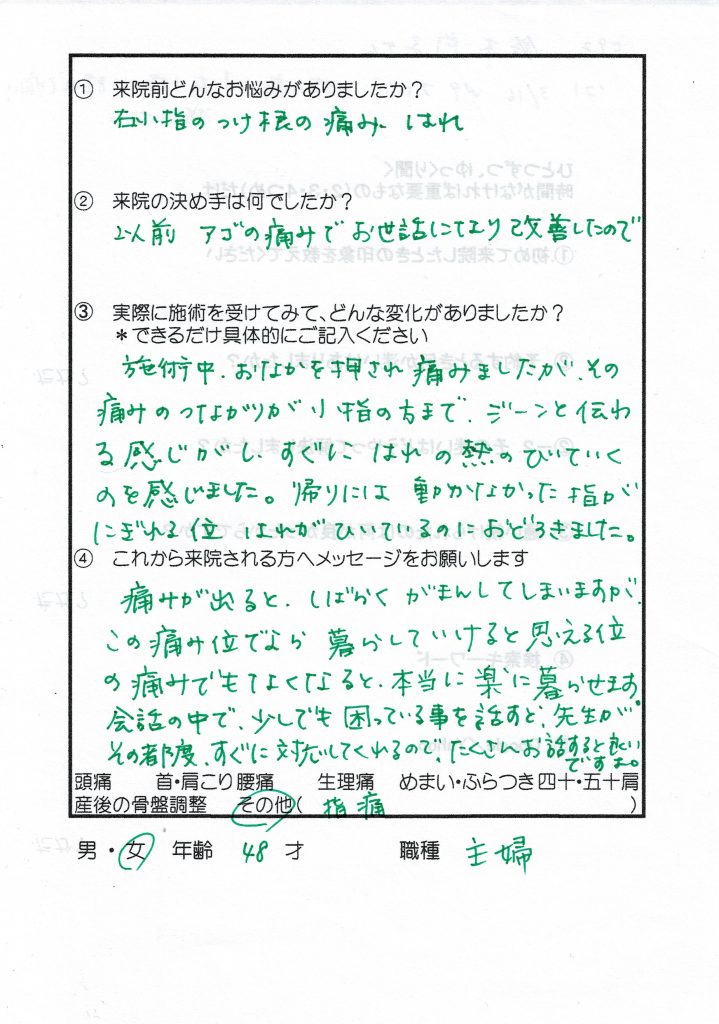 ① 来院前どんなお悩みがありましたか？
右小指のつけ根の痛み、はれ
② 来院の決め手は何でしたか？
以前 アゴの痛みでお世話になり改善したので
③ 実際に施術を受けてみて、どんな変化がありましたか？
＊できるだけ具体的にご記入ください
施術中、おなかを押され痛みましたが、その
痛みのつながりが小指の方まで、ジーンと伝わ
る感じがし、すぐに はれの熱のひいていく
のを感じました。帰りには 動かなかった指が
にぎれる位 はれがひいているのにおどろきました。
④ これから来院される方へメッセージをお願いします
痛みが出ると、しばらくがまんしてしまいますが、
この痛み位でなら 暮らしていけると思える位
の痛みでもなくなると、本当に楽に暮らせます。
会話の中で、少しでも困っている事を話すと、先生が
その都度、すぐに対応してくれるので、たくさんお話すると良い
ですよ。
頭痛 首・肩こり 腰痛 生理痛 めまい・ふらつき 四十・五十肩
産後の骨盤調整 その他（ 指痛 ）
男・女 年齢 48 才 職種 主婦